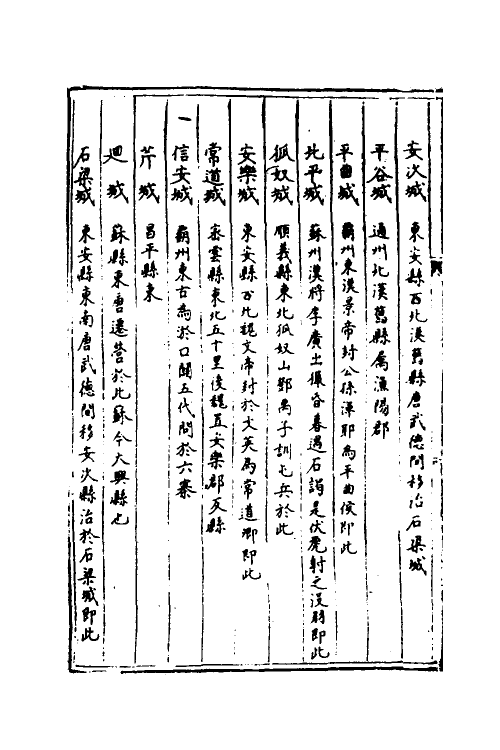 安次城 東安縣西北漢舊縣唐武德間移治石梁城
平谷城 通州北漢舊縣屬漁陽郡
平曲城 霸州東漢景帝封公孫渾耶為平曲侯即此
北平城 蘇州漢將李廣出獵昏暮遇石謂是伏虎射之沒羽即此
狐奴城 順義縣東北狐奴山鄧禹子訓屯兵於此
安樂城 東安縣西北魏文帝封於文英為常道鄉即此
常道城 密雲縣東北五十里後魏置安樂郡及縣
信安城 霸州東古為淤口關五代間於六寨
芹城 昌平縣東
廻城 蘇縣東唐遷營於此蘇今大興縣也
石梁城 東安縣東南唐武德間移安次縣治於石梁城即此